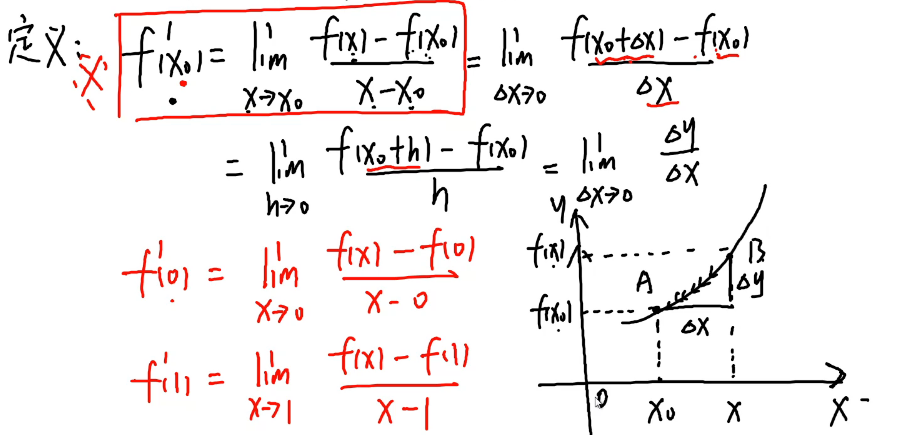 定义: f'(x₀) = lim x→x₀ (f(x) - f(x₀))/(x - x₀) = lim Δx→0 (f(x₀+Δx) - f(x₀))/Δx
= lim h→0 (f(x₀+h) - f(x₀))/h = lim Δx→0 Δy/Δx
f'(0) = lim x→0 (f(x) - f(0))/(x - 0)
f'(1) = lim x→1 (f(x) - f(1))/(x - 1)
y
f(x)
B
A
Δy
f(x₀)
Δx
0
x₀
x
x